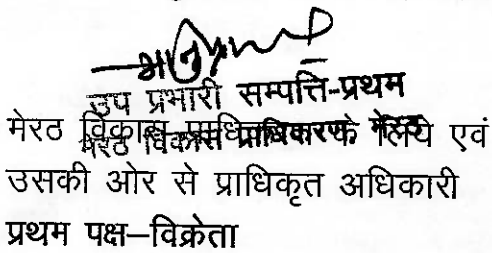 उप प्रभारी सम्पत्ति-प्रथम
मेरठ विकास प्राधिकरण मेरठ
मेरठ विकास प्राधिकरण के लिये एवं
उसकी ओर से प्राधिकृत अधिकारी
प्रथम पक्ष–विक्रेता